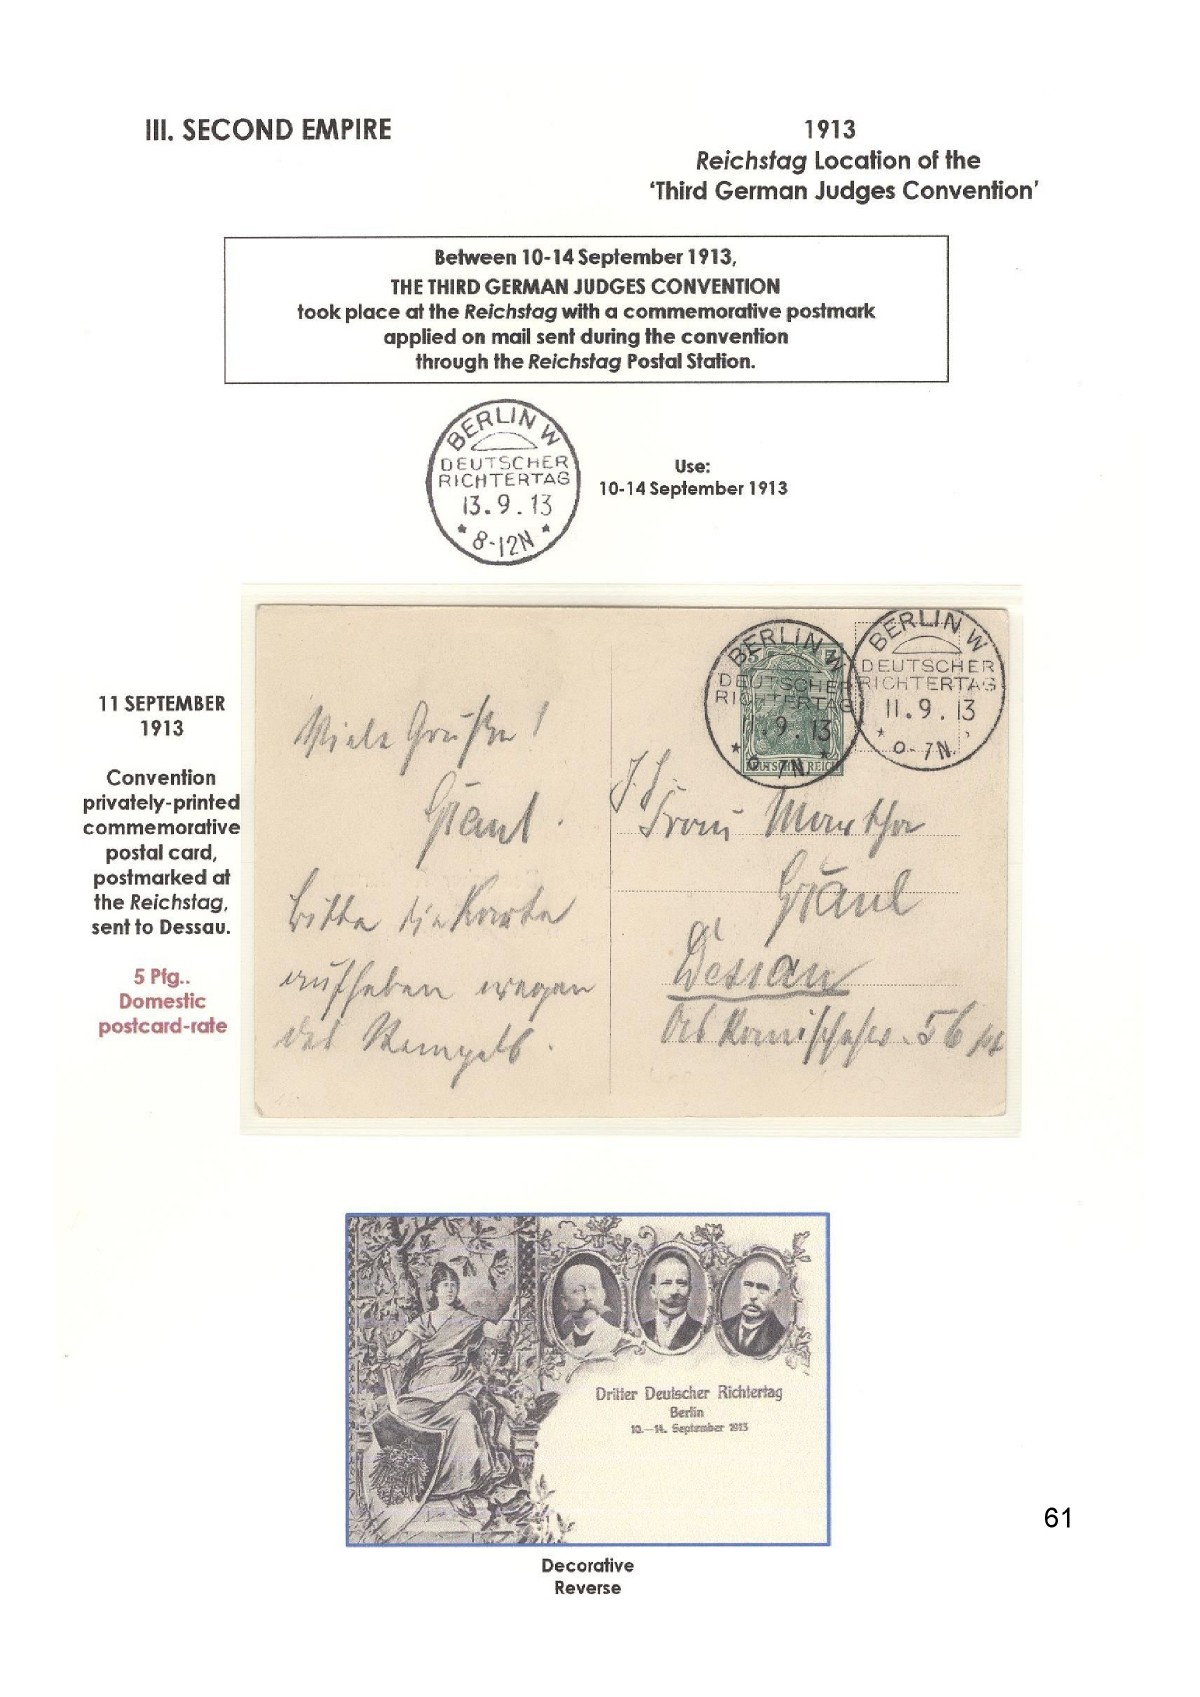 III. SECOND EMPIRE
1913
Reichstag Location of the
‘Third German Judges Convention’
Between 10-14 September 1913,
THE THIRD GERMAN JUDGES CONVENTION
took place at the Reichstag with a commemorative postmark
applied on mail sent during the convention
through the Reichstag Postal Station.
BERLIN W
DEUTSCHER
RICHTERTAG
13.9.13
* 8-12N *
Use:
10-14 September 1913
11 SEPTEMBER
1913
Convention
privately-printed
commemorative
postal card,
postmarked at
the Reichstag,
sent to Dessau.
5 Pfg..
Domestic
postcard-rate
BERLIN W
DEUTSCHER
RICHTERTAG
11.9.13
7N.
DEUTSCHES REICH
BERLIN W
DEUTSCHER
RICHTERTAG
11.9.13
7N.
Viele Grüße!
Gräul.
Bitte die Karte
aufheben wegen
des Stempels.
Frau Martha
Gräul
Dessau
56
Dritter Deutscher Richtertag
Berlin
10.—14. September 1913
Decorative
Reverse
61